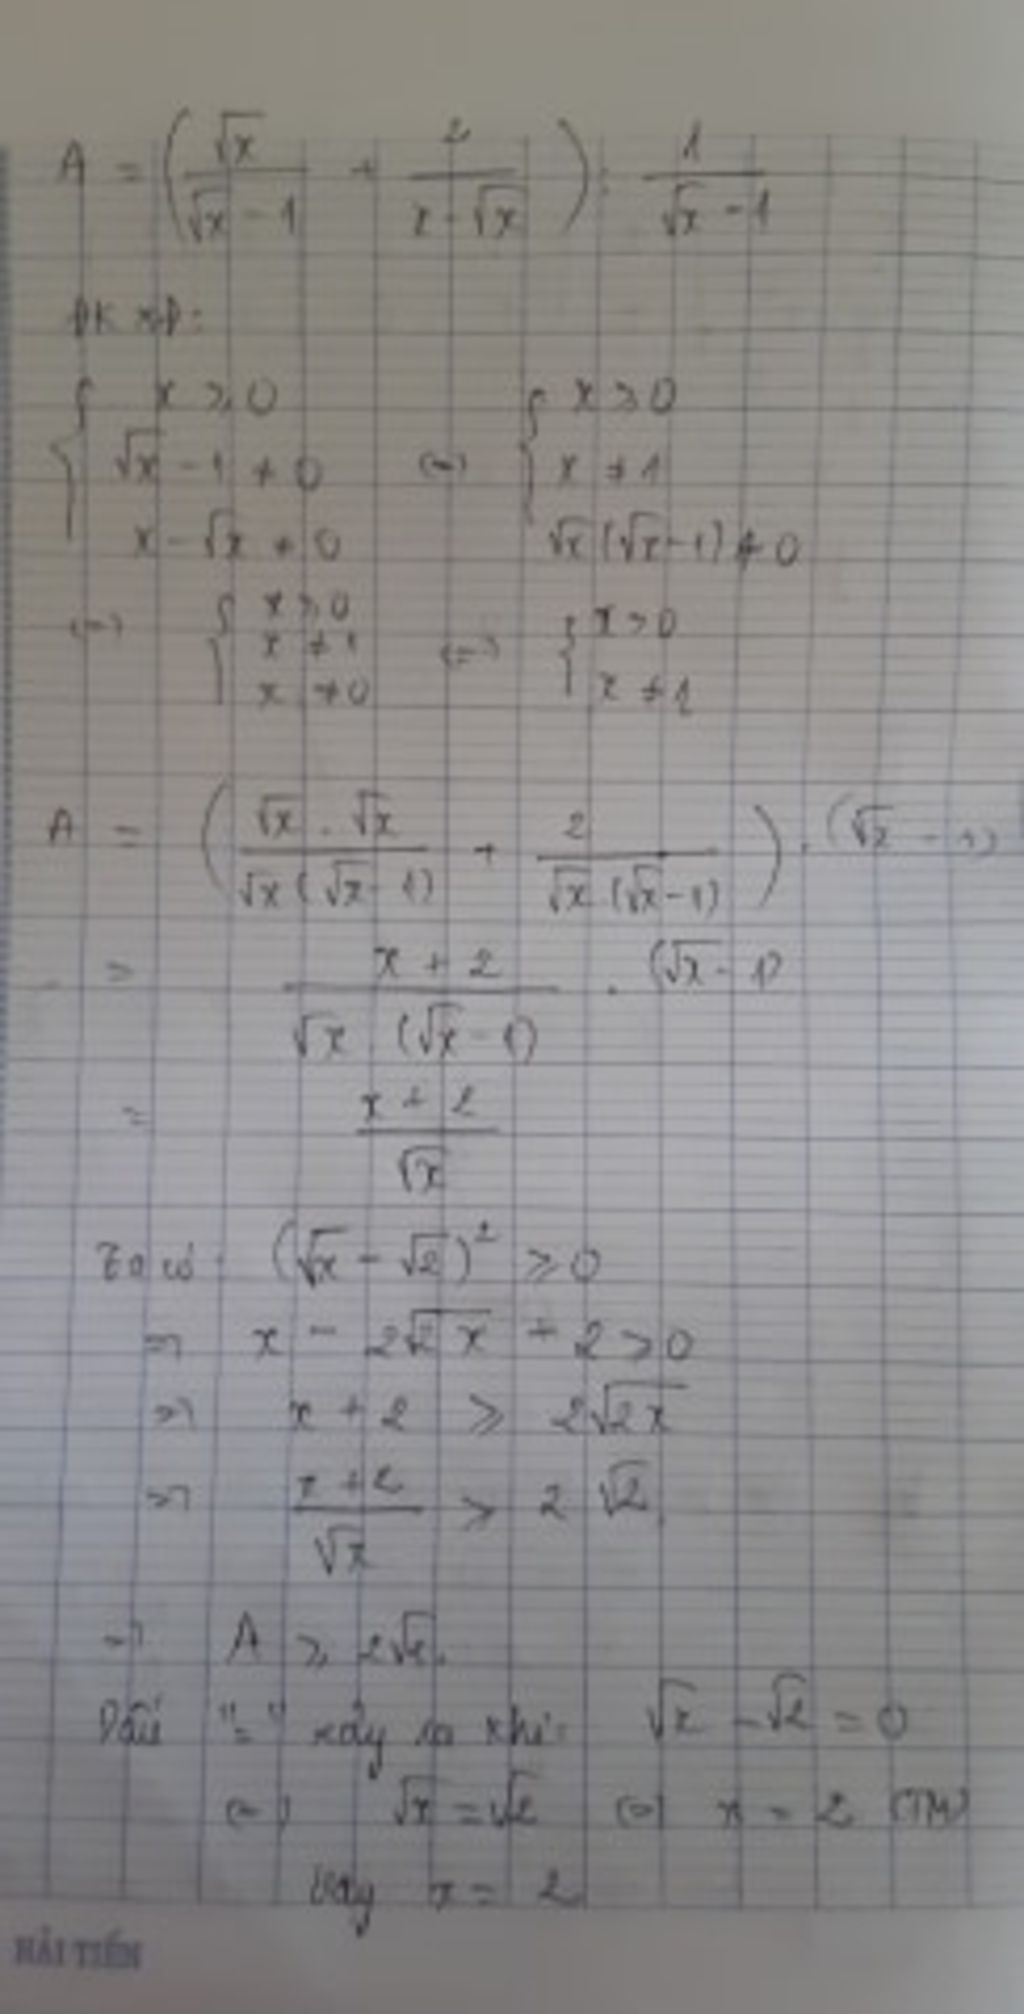 A = (√x/(√x - 1) + 2/(x - √x)) : 1/(√x - 1)
ĐKXĐ:
{ x ≥ 0 ; √x - 1 ≠ 0 ; x - √x ≠ 0 (=) { x ≥ 0 ; x ≠ 1 ; √x (√x - 1) ≠ 0
(=) { x ≥ 0 ; x ≠ 1 ; x ≠ 0 (=) { x > 0 ; x ≠ 1
A = (√x . √x/(√x (√x - 1)) + 2/(√x (√x - 1))) . (√x - 1)
= (x + 2)/(√x (√x - 1)) . (√x - 1)
= (x + 2)/√x
Ta có: (√x - √2)² ≥ 0
=> x - 2√2x + 2 ≥ 0
=> x + 2 ≥ 2√2x
=> (x + 2)/√x ≥ 2√2
=> A ≥ 2√2.
Dấu "=" xảy ra khi: √x - √2 = 0
(=) √x = √2 (=) x = 2 (TM)
Vậy x = 2
HẢI TIẾN